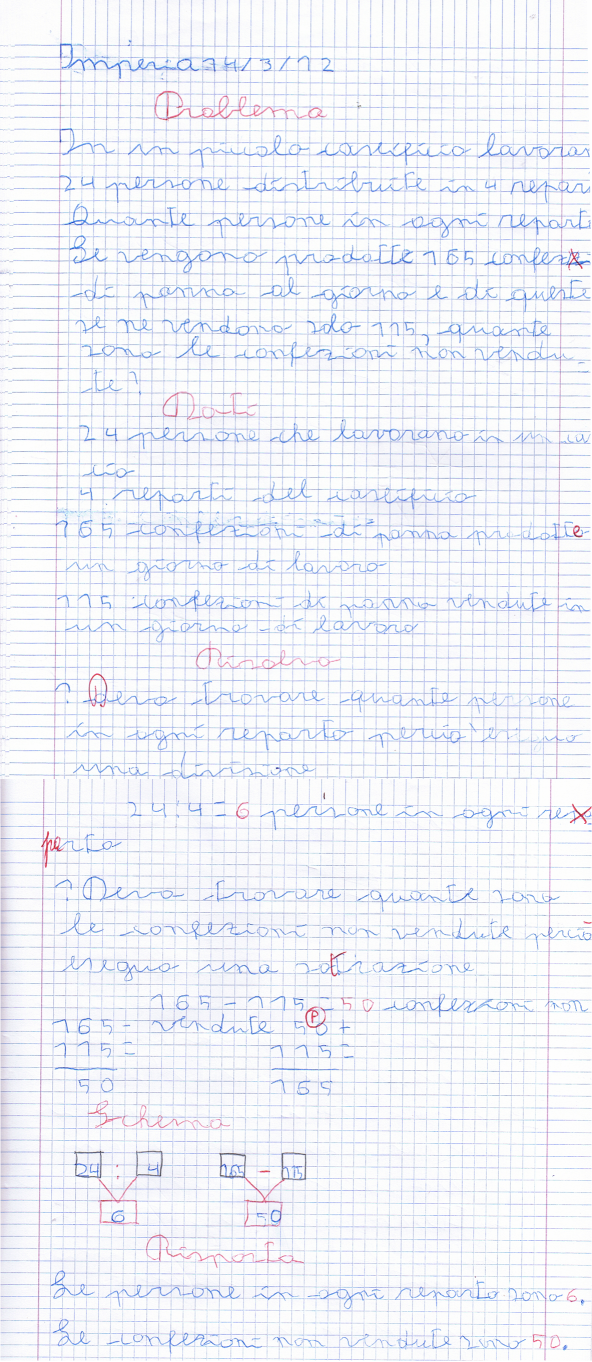 Imperia 14/3/12
Problema
In un piccolo caseificio lavoran
24 persone distribuite in 4 repar
Quante persone in ogni reparto
Se vengono prodotte 165 confez
di panna al giorno e di queste
se ne vendono solo 115, quante
sono le confezioni non vendu-
te?
Dati
24 persone che lavorano in un ca
cio
4 reparti del caseificio
165 confezioni di panna prodotte
un giorno di lavoro
115 confezioni di panna vendute in
un giorno di lavoro
Risolvo
? Devo trovare quante persone
in ogni reparto perciò eseguo
una divisione
24:4=6 persone in ogni re
parto
? Devo trovare quante sono
le confezioni non vendute perciò
eseguo una sottrazione
165-115=50 confezioni non
165- vendute 50+
115= 115=
50 165
Schema
24 : 4 165 - 115
6 50
Risposta
Le persone in ogni reparto sono 6.
Le confezioni non vendute sono 50.